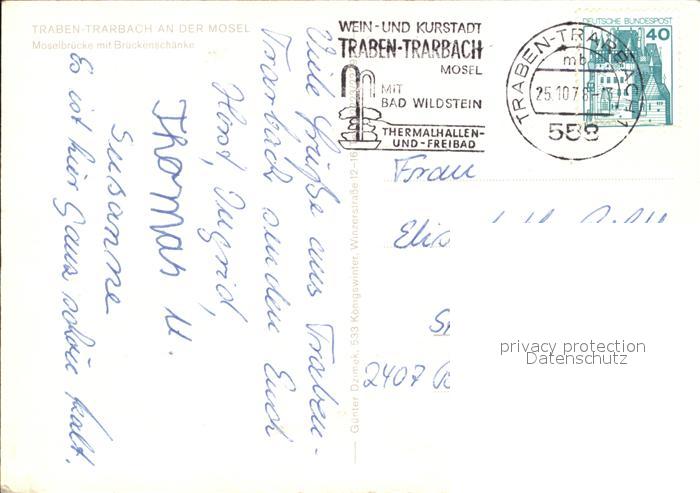 TRABEN-TRARBACH AN DER MOSEL
Moselbrücke mit Brückenschänke
Viele Grüße aus Traben-
Trarbach senden Euch
Horst, Ingrid,
Thomas u.
Susanne
Es ist hier Ganz schön kalt.
Günter Dzimek, 533 Königswinter, Winzerstraße 12-16
WEIN-UND KURSTADT
TRABEN-TRARBACH
MOSEL
MIT
BAD WILDSTEIN
THERMALHALLEN-
UND-FREIBAD
TRABEN-TRARBACH 1
mb
25.10.78
558
DEUTSCHE BUNDESPOST
40
Frau
Elis
2407
privacy protection
Datenschutz